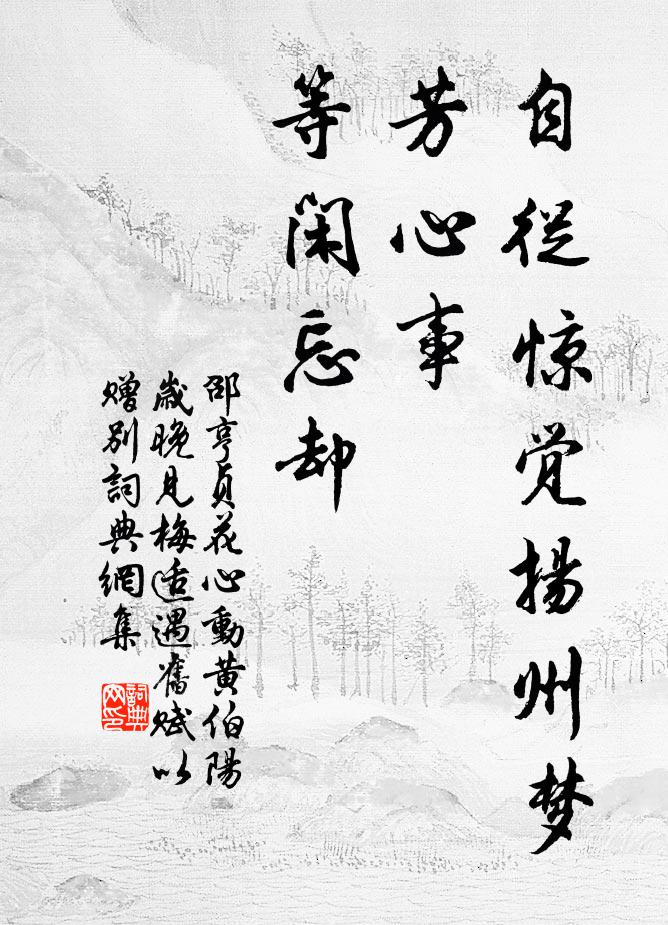 自從惊觉揚州梦
芳心事
等閑忘却
邵亨貞花心動黄伯陽
歲晚見梅适遇舊赋以
贈别詞典網集
詞典
网印